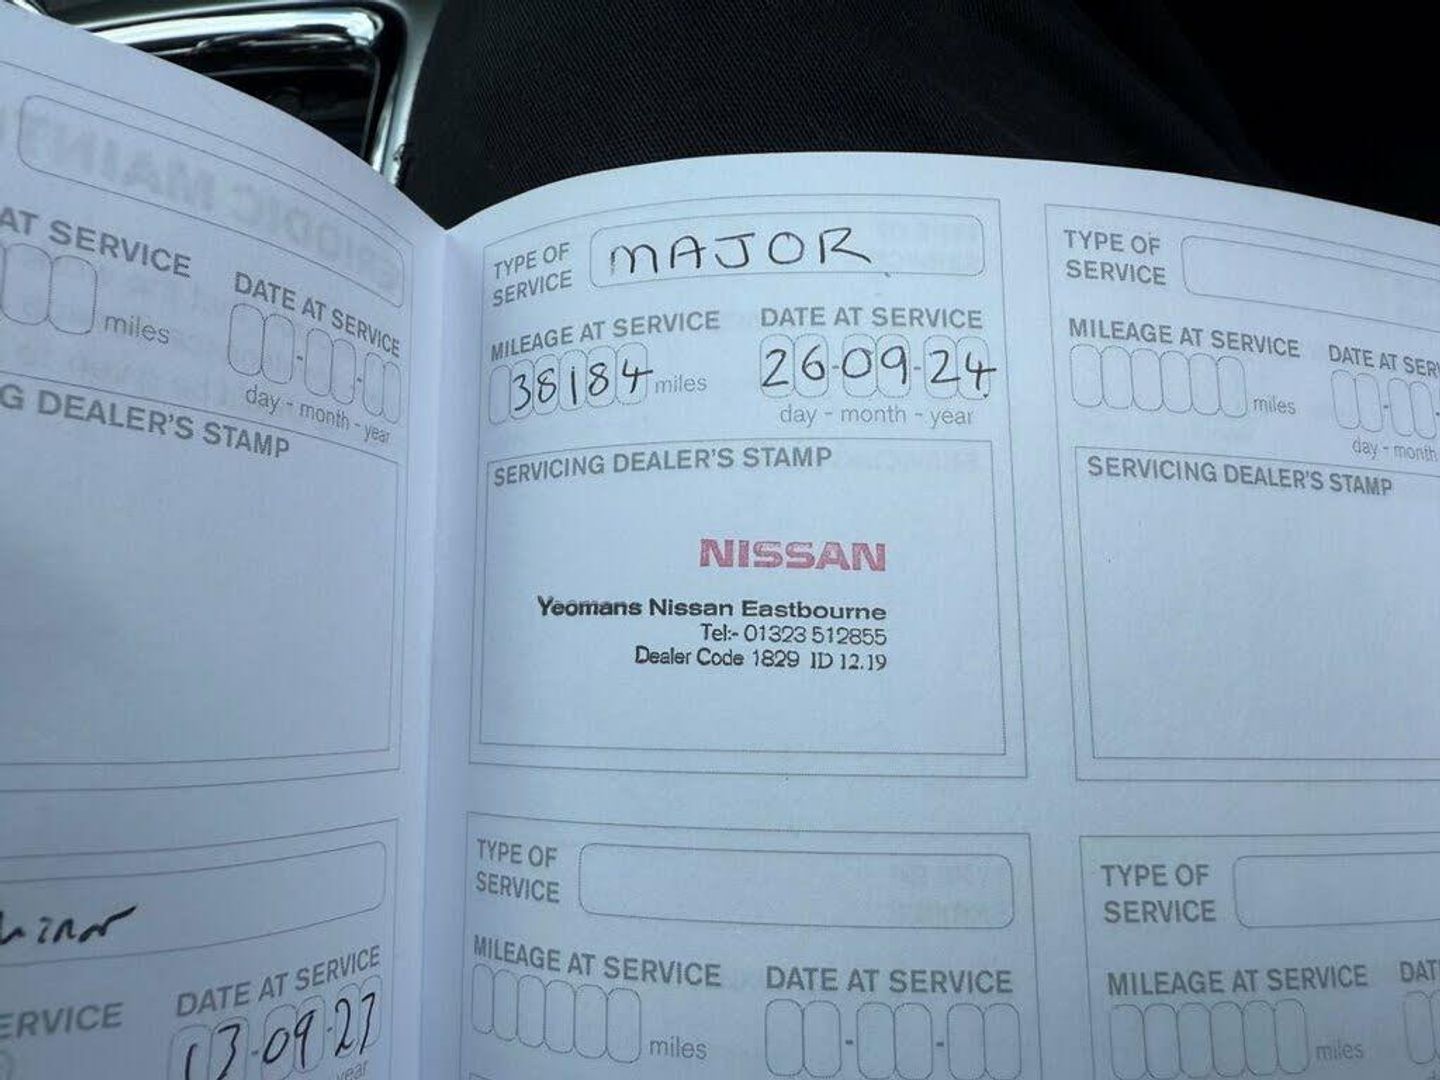 AT SERVICE
miles
DATE AT SERVICE
day - month - year
G DEALER'S STAMP
DATE AT SERVICE
ERVICE
year
TYPE OF
SERVICE
MAJOR
MILEAGE AT SERVICE
38184 miles
DATE AT SERVICE
26-09-24
day - month - year
SERVICING DEALER'S STAMP
NISSAN
Yeomans Nissan Eastbourne
Tel:- 01323 512855
Dealer Code 1829 ID 12.19
TYPE OF
SERVICE
MILEAGE AT SERVICE
miles
DATE AT SERVICE
TYPE OF
SERVICE
MILEAGE AT SERVICE
miles
DATE AT SER
day - month
SERVICING DEALER'S STAMP
TYPE OF
SERVICE
MILEAGE AT SERVICE
miles
DAT